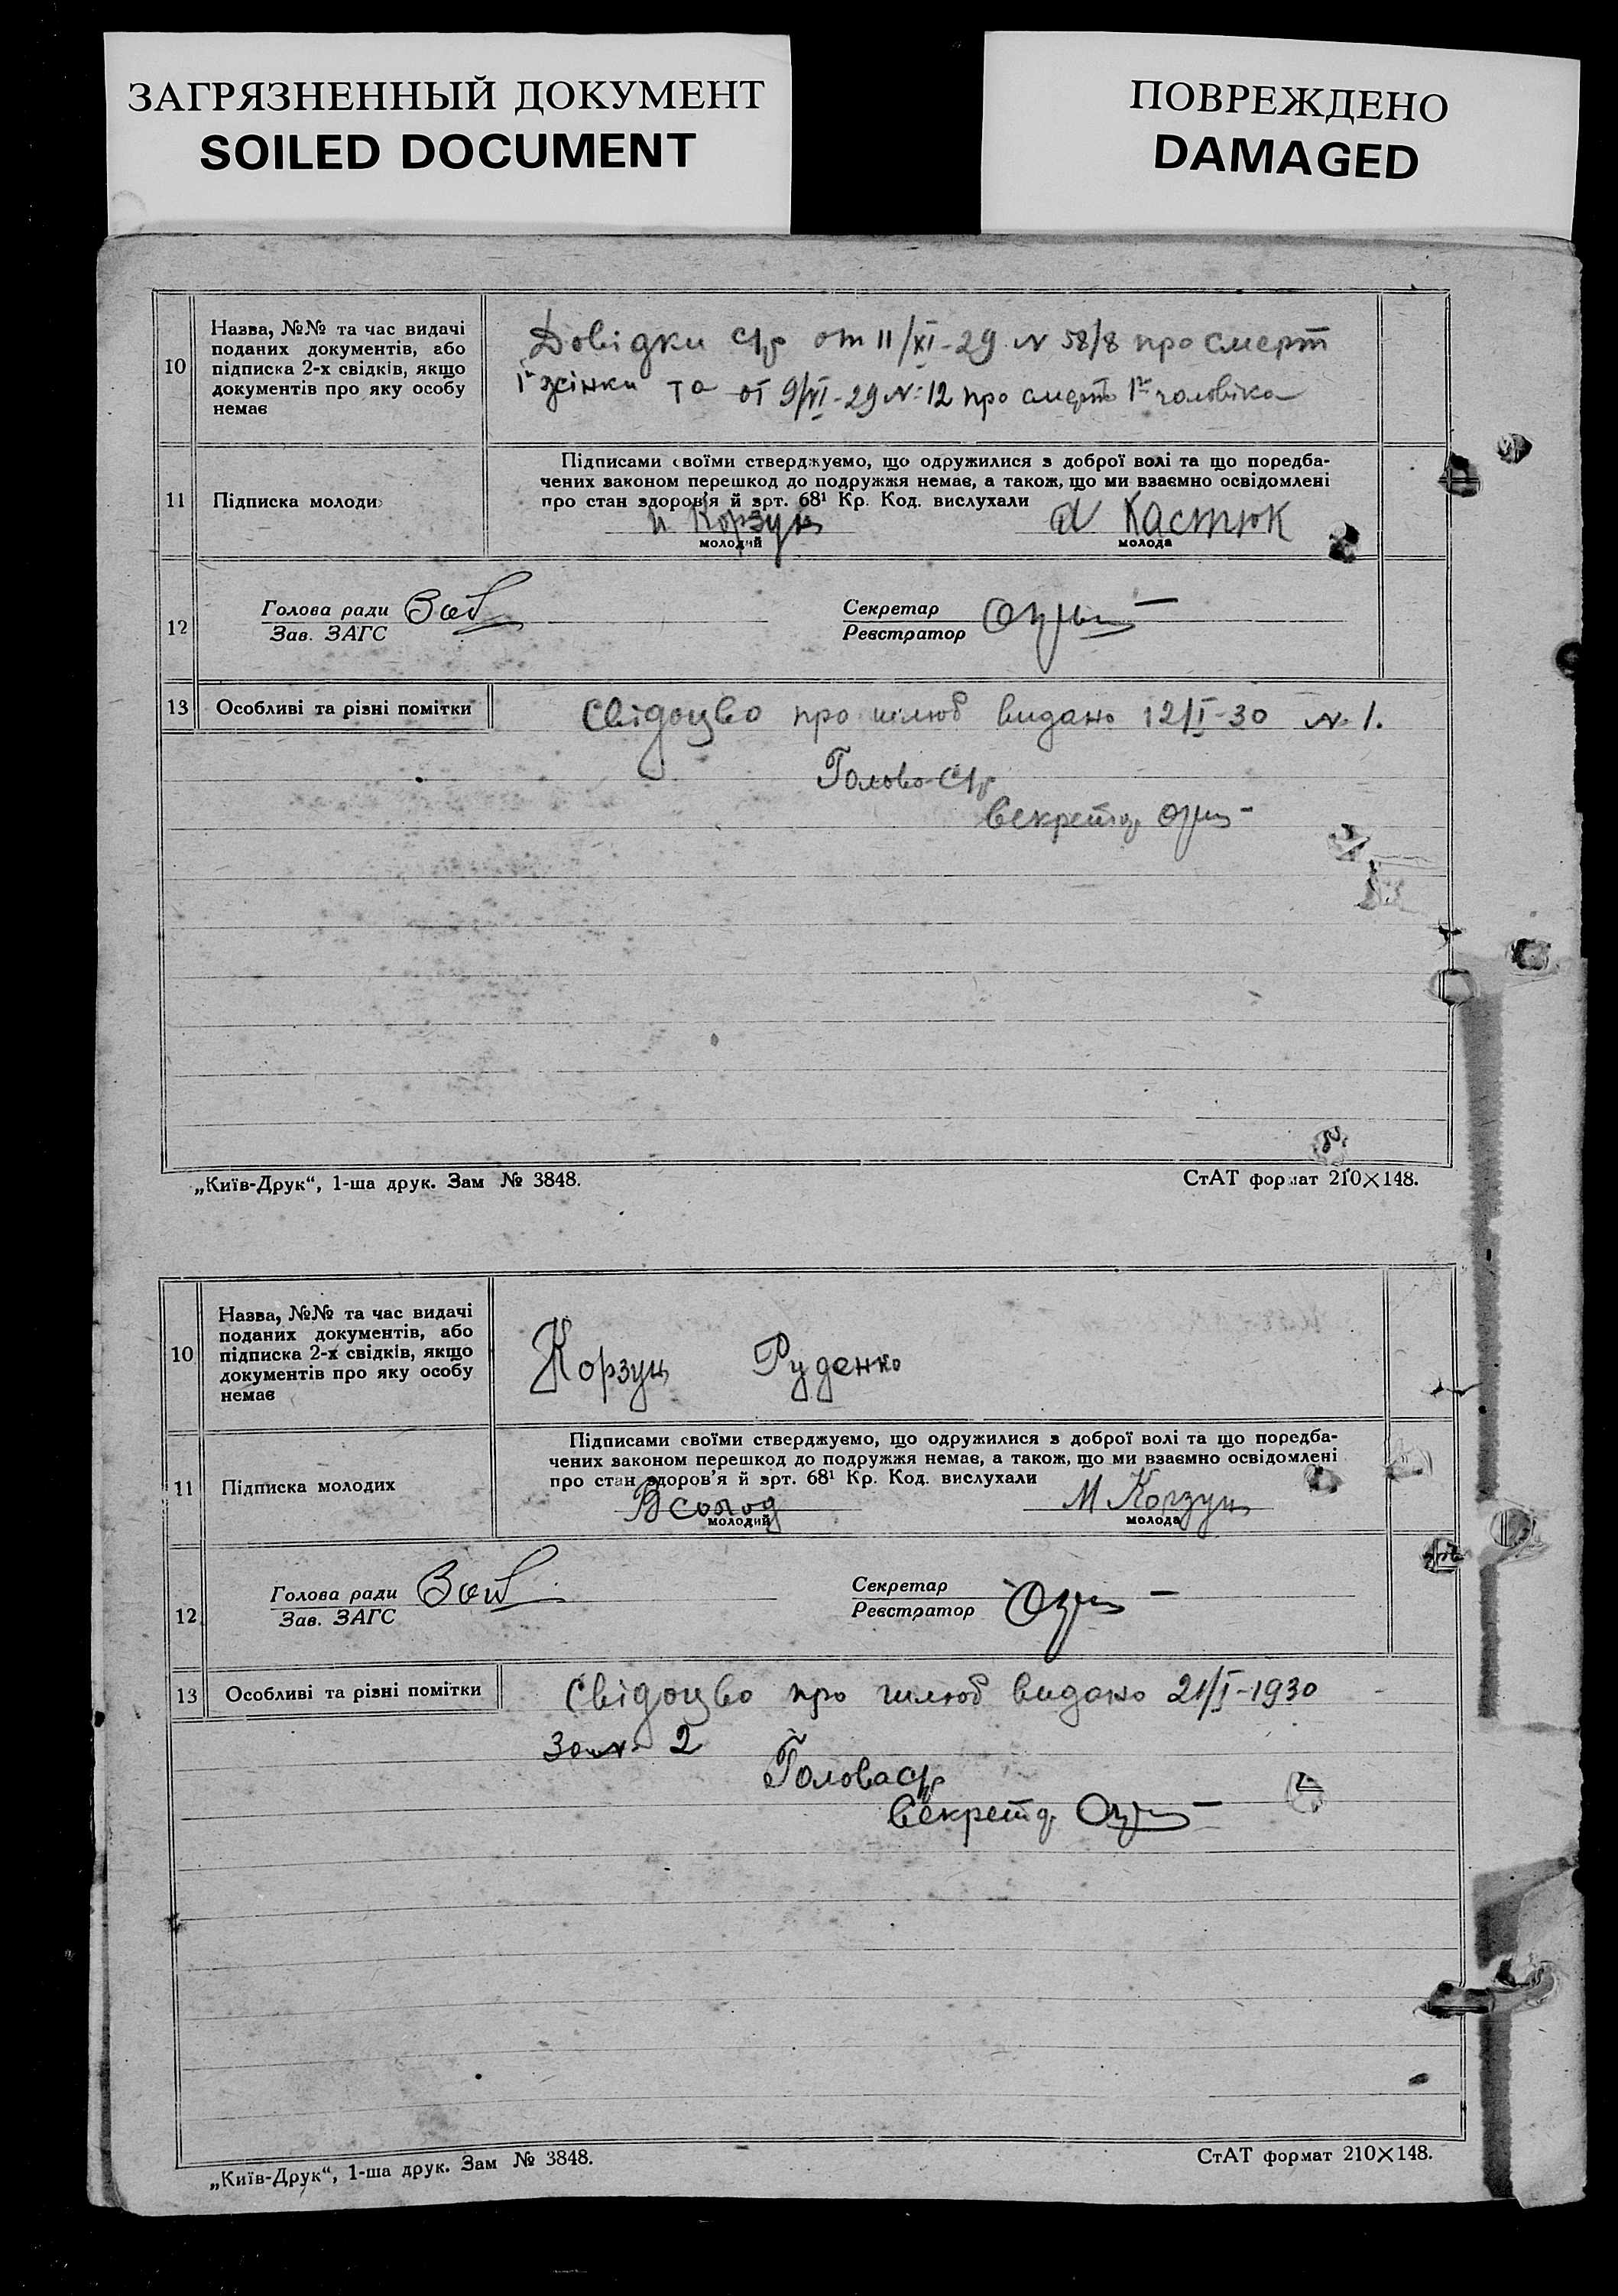 ЗАГРЯЗНЕННЫЙ ДОКУМЕНТ
SOILED DOCUMENT
ПОВРЕЖДЕНО
DAMAGED
10
Назва, №№ та час видачі
поданих документів, або
підписка 2-х свідків, якщо
документів про яку особу
немає
Довідки С/р от 11/XI-29 N 58/8 про смерт
1ї жінки та от 9/VI-29 N 12 про смерт 1го чоловіка
11
Підписка молоди
Підписами своїми стверджуємо, що одружилися з доброї волі та що поредба-
чених законом перешкод до подружжя немає, а також, що ми взаємно освідомлені
про стан здоров'я й арт. 68¹ Кр. Код. вислухали
Корзун
молодий
Кастюк
молода
12
Голова ради
Зав. ЗАГС
Секретар
Реєстратор
13
Особливі та різні помітки
Свідоцво про шлюб видано 12/I-30 N 1.
Голова С/р
Секретар
„Київ-Друк“, 1-ша друк. Зам № 3848.
СтАТ формат 210×148.
10
Назва, №№ та час видачі
поданих документів, або
підписка 2-х свідків, якщо
документів про яку особу
немає
Корзун Руденко
11
Підписка молодих
Підписами своїми стверджуємо, що одружилися з доброї волі та що поредба-
чених законом перешкод до подружжя немає, а також, що ми взаємно освідомлені
про стан здоров'я й арт. 68¹ Кр. Код. вислухали
В Солод
молодий
М Корзун
молода
12
Голова ради
Зав. ЗАГС
Секретар
Реєстратор
13
Особливі та різні помітки
Свідоцво про шлюб видано 21/I-1930
За N 2
Голова С/р
Секретар
„Київ-Друк“, 1-ша друк. Зам № 3848.
СтАТ формат 210×148.